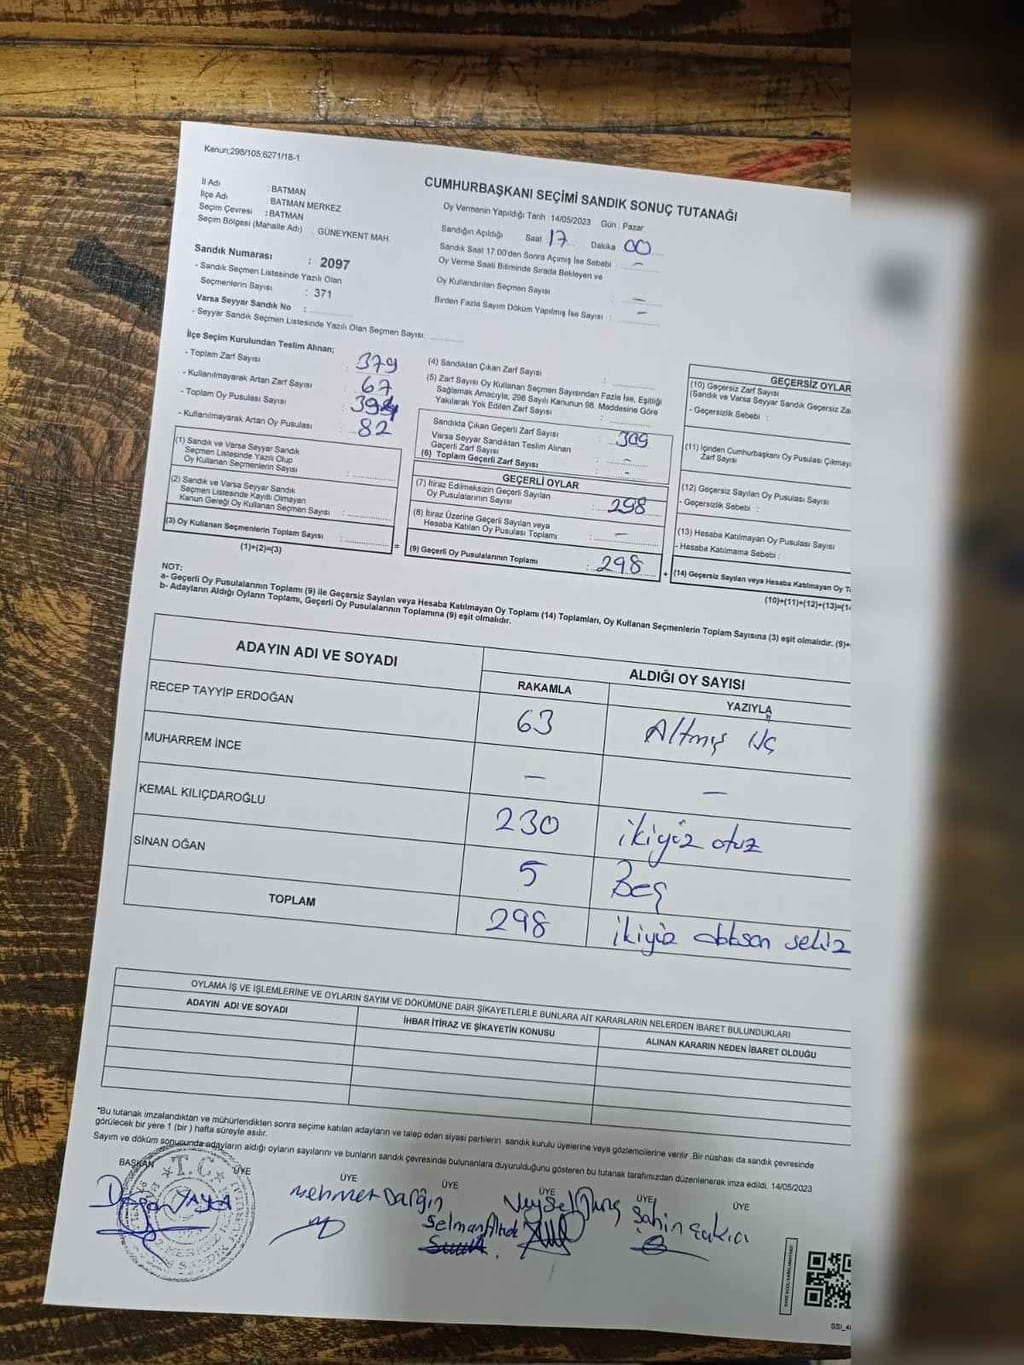 Kanun;298/105;6271/18-1
CUMHURBAŞKANI SEÇİMİ SANDIK SONUÇ TUTANAĞI
İl Adı : BATMAN
İlçe Adı : BATMAN MERKEZ
Seçim Çevresi : BATMAN
Seçim Bölgesi (Mahalle Adı) . GÜNEYKENT MAH.
Sandık Numarası : 2097
- Sandık Seçmen Listesinde Yazılı Olan
Seçmenlerin Sayısı : 371
Varsa Seyyar Sandık No :
- Seyyar Sandık Seçmen Listesinde Yazılı Olan Seçmen Sayısı:
Oy Vermenin Yapıldığı Tarih :14/05/2023 Gün : Pazar
Sandığın Açıldığı Saat 17 Dakika 00
Sandık Saat 17.00'den Sonra Açımış İse Sebebi : –
Oy Verme Saati Bitiminde Sırada Bekleyen ve
Oy Kullandırılan Seçmen Sayısı : –
Birden Fazla Sayım Döküm Yapılmış İse Sayısı : –
İlçe Seçim Kurulundan Teslim Alınan;
- Toplam Zarf Sayısı : 379
- Kullanılmayarak Artan Zarf Sayısı : 67
- Toplam Oy Pusulası Sayısı :
- Kullanılmayarak Artan Oy Pusulası : 82
(1) Sandık ve Varsa Seyyar Sandık
Seçmen Listesinde Yazılı Olup
Oy Kullanan Seçmenlerin Sayısı :
(2) Sandık ve Varsa Seyyar Sandık
Seçmen Listesinde Kayıtlı Olmayan
Kanun Gereği Oy Kullanan Seçmen Sayısı :
(3) Oy Kullanan Seçmenlerin Toplam Sayısı :
(1)+(2)=(3)
=
(4) Sandıktan Çıkan Zarf Sayısı :
(5) Zarf Sayısı Oy Kullanan Seçmen Sayısından Fazla İse, Eşitliği
Sağlamak Amacıyla; 298 Sayılı Kanunun 98. Maddesine Göre
Yakılarak Yok Edilen Zarf Sayısı :
Sandıkta Çıkan Geçerli Zarf Sayısı : 309
Varsa Seyyar Sandıktan Teslim Alınan
Geçerli Zarf Sayısı : –
(6) Toplam Geçerli Zarf Sayısı : –
GEÇERLİ OYLAR
(7) İtiraz Edilmeksizin Geçerli Sayılan
Oy Pusulalarının Sayısı : 298
(8) İtiraz Üzerine Geçerli Sayılan veya
Hesaba Katılan Oy Pusulası Toplamı : –
(9) Geçerli Oy Pusulalarının Toplamı : 298
+
GEÇERSİZ OYLAR
(10) Geçersiz Zarf Sayısı
(Sandık ve Varsa Seyyar Sandık Geçersiz Za
- Geçersizlik Sebebi :
(11) İçinden Cumhurbaşkanı Oy Pusulası Çıkmay
Zarf Sayısı
(12) Geçersiz Sayılan Oy Pusulası Sayısı
- Geçersizlik Sebebi :
(13) Hesaba Katılmayan Oy Pusulası Sayısı
- Hesaba Katılmama Sebebi :
(14) Geçersiz Sayılan veya Hesaba Katılmayan Oy T
(10)+(11)+(12)+(13)=(1
NOT:
a- Geçerli Oy Pusulalarının Toplamı (9) ile Geçersiz Sayılan veya Hesaba Katılmayan Oy Toplamı (14) Toplamları, Oy Kullanan Seçmenlerin Toplam Sayısına (3) eşit olmalıdır. (9)+
b- Adayların Aldığı Oyların Toplamı, Geçerli Oy Pusulalarının Toplamına (9) eşit olmalıdır.
ADAYIN ADI VE SOYADI
ALDIĞI OY SAYISI
RAKAMLA YAZIYLA
RECEP TAYYİP ERDOĞAN 63 Altmış üç
MUHARREM İNCE – –
KEMAL KILIÇDAROĞLU 230 ikiyüz otuz
SİNAN OĞAN 5 Beş
TOPLAM 298 ikiyüz doksan sekiz
OYLAMA İŞ VE İŞLEMLERİNE VE OYLARIN SAYIM VE DÖKÜMÜNE DAİR ŞİKAYETLERLE BUNLARA AİT KARARLARIN NELERDEN İBARET BULUNDUKLARI
ADAYIN ADI VE SOYADI İHBAR İTİRAZ VE ŞİKAYETİN KONUSU ALINAN KARARIN NEDEN İBARET OLDUĞU
*Bu tutanak imzalandıktan ve mühürlendikten sonra seçime katılan adayların ve talep eden siyasi partilerin sandık kurulu üyelerine veya gözlemcilerine verilir .Bir nüshası da sandık çevresinde
görülecek bir yere 1 (bir ) hafta süreyle asılır.
Sayım ve döküm sonucunda adayların aldığı oyların sayılarını ve bunların sandık çevresinde bulunanlara duyurulduğunu gösteren bu tutanak tarafımızdan düzenlenerek imza edildi. 14/05/2023
BAŞKAN ÜYE ÜYE ÜYE ÜYE ÜYE ÜYE
T.C.
Doğan YAYLA
Mehmet Dargın
Selman
Veysel
Şahin Çakıcı